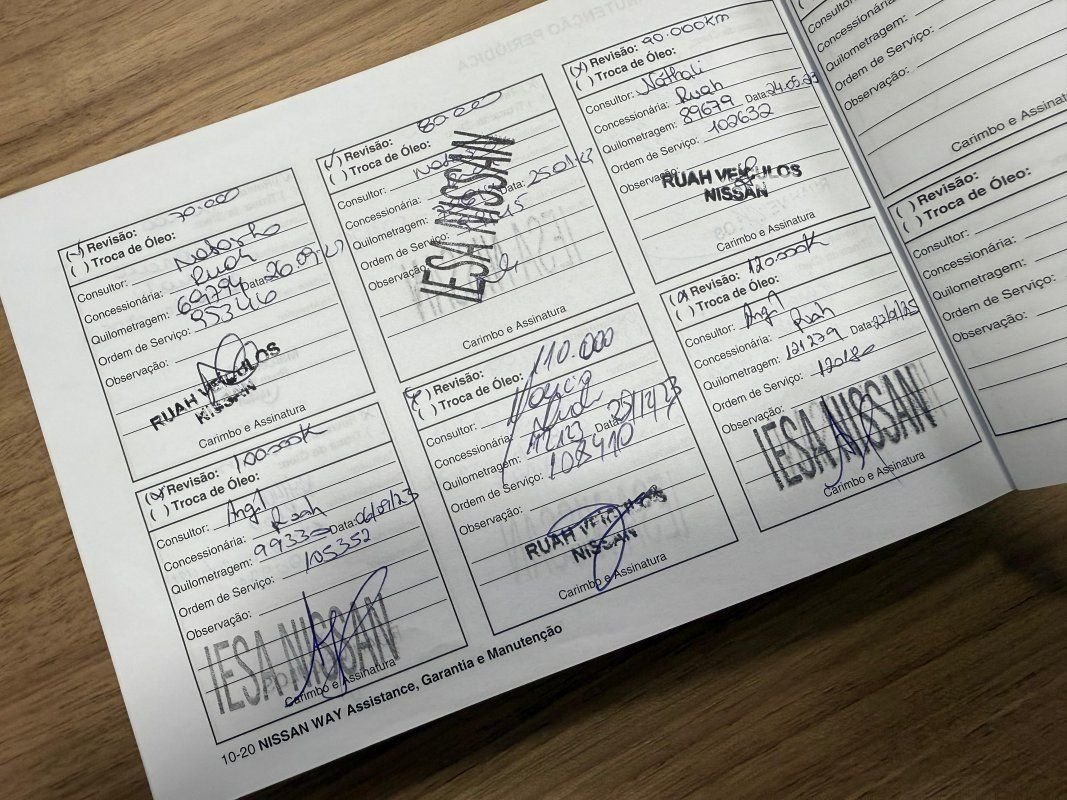 70.000
Revisão:
( ) Troca de Óleo:
Consultor:
Concessionária: Ruah
Quilometragem: 69794 Data: 26.09.22
Ordem de Serviço: 95346
Observação:
RUAH VEICULOS
NISSAN
Carimbo e Assinatura
80.000
Revisão:
( ) Troca de Óleo:
Consultor:
Concessionária: Data:
Quilometragem:
Ordem de Serviço:
Observação:
IESA NISSAN
Carimbo e Assinatura
(x) Revisão: 90.000km
( ) Troca de Óleo:
Consultor: Nathali
Concessionária: Ruah
Quilometragem: 89679 Data: 24.05.23
Ordem de Serviço: 102632
Observação:
RUAH VEICULOS
NISSAN
Carimbo e Assinatura
(x) Revisão: 100.000k
( ) Troca de Óleo:
Consultor: Angel
Concessionária: Ruah
Quilometragem: Data: 06/09/23
Ordem de Serviço: 105352
Observação:
IESA NISSAN
Carimbo e Assinatura
Revisão: 110.000
( ) Troca de Óleo:
Consultor:
Concessionária: Ruah
Quilometragem: Data:
Ordem de Serviço: 108410
Observação:
RUAH VEICULOS
NISSAN
Carimbo e Assinatura
Revisão: 120.000k
( ) Troca de Óleo:
Consultor: Angel
Concessionária: Ruah
Quilometragem: 121279 Data: 22/01/25
Ordem de Serviço: 120180
Observação:
IESA NISSAN
Carimbo e Assinatura
10-20 NISSAN WAY Assistance, Garantia e Manutenção
Consultor:
Concessionária:
Quilometragem:
Ordem de Serviço:
Observação:
Carimbo e Assinatura
( ) Revisão:
( ) Troca de Óleo:
Consultor:
Concessionária:
Quilometragem:
Ordem de Serviço:
Observação: